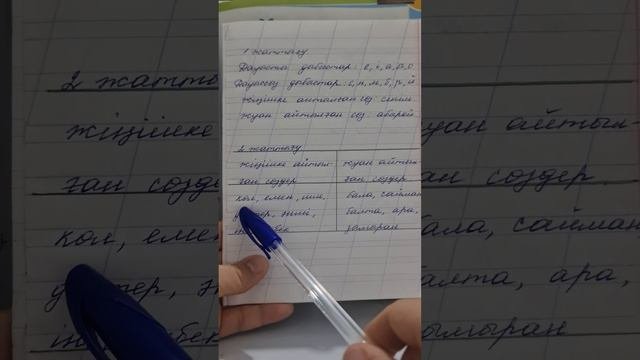 1 жаттығу
Дауысты дыбыстар: е, і, а,
Дауыссыз дыбыстар: с, н, м, б, р, й
Жіңішке айтылған сөз сенім
Жуан айтылған сөз абырой
2 жаттығу
Жіңішке айтыл-
ған сөздер
көл, емен,
Жуан айтыл-
ған сөздер
бала, сайман
балта, ара,
зымыран